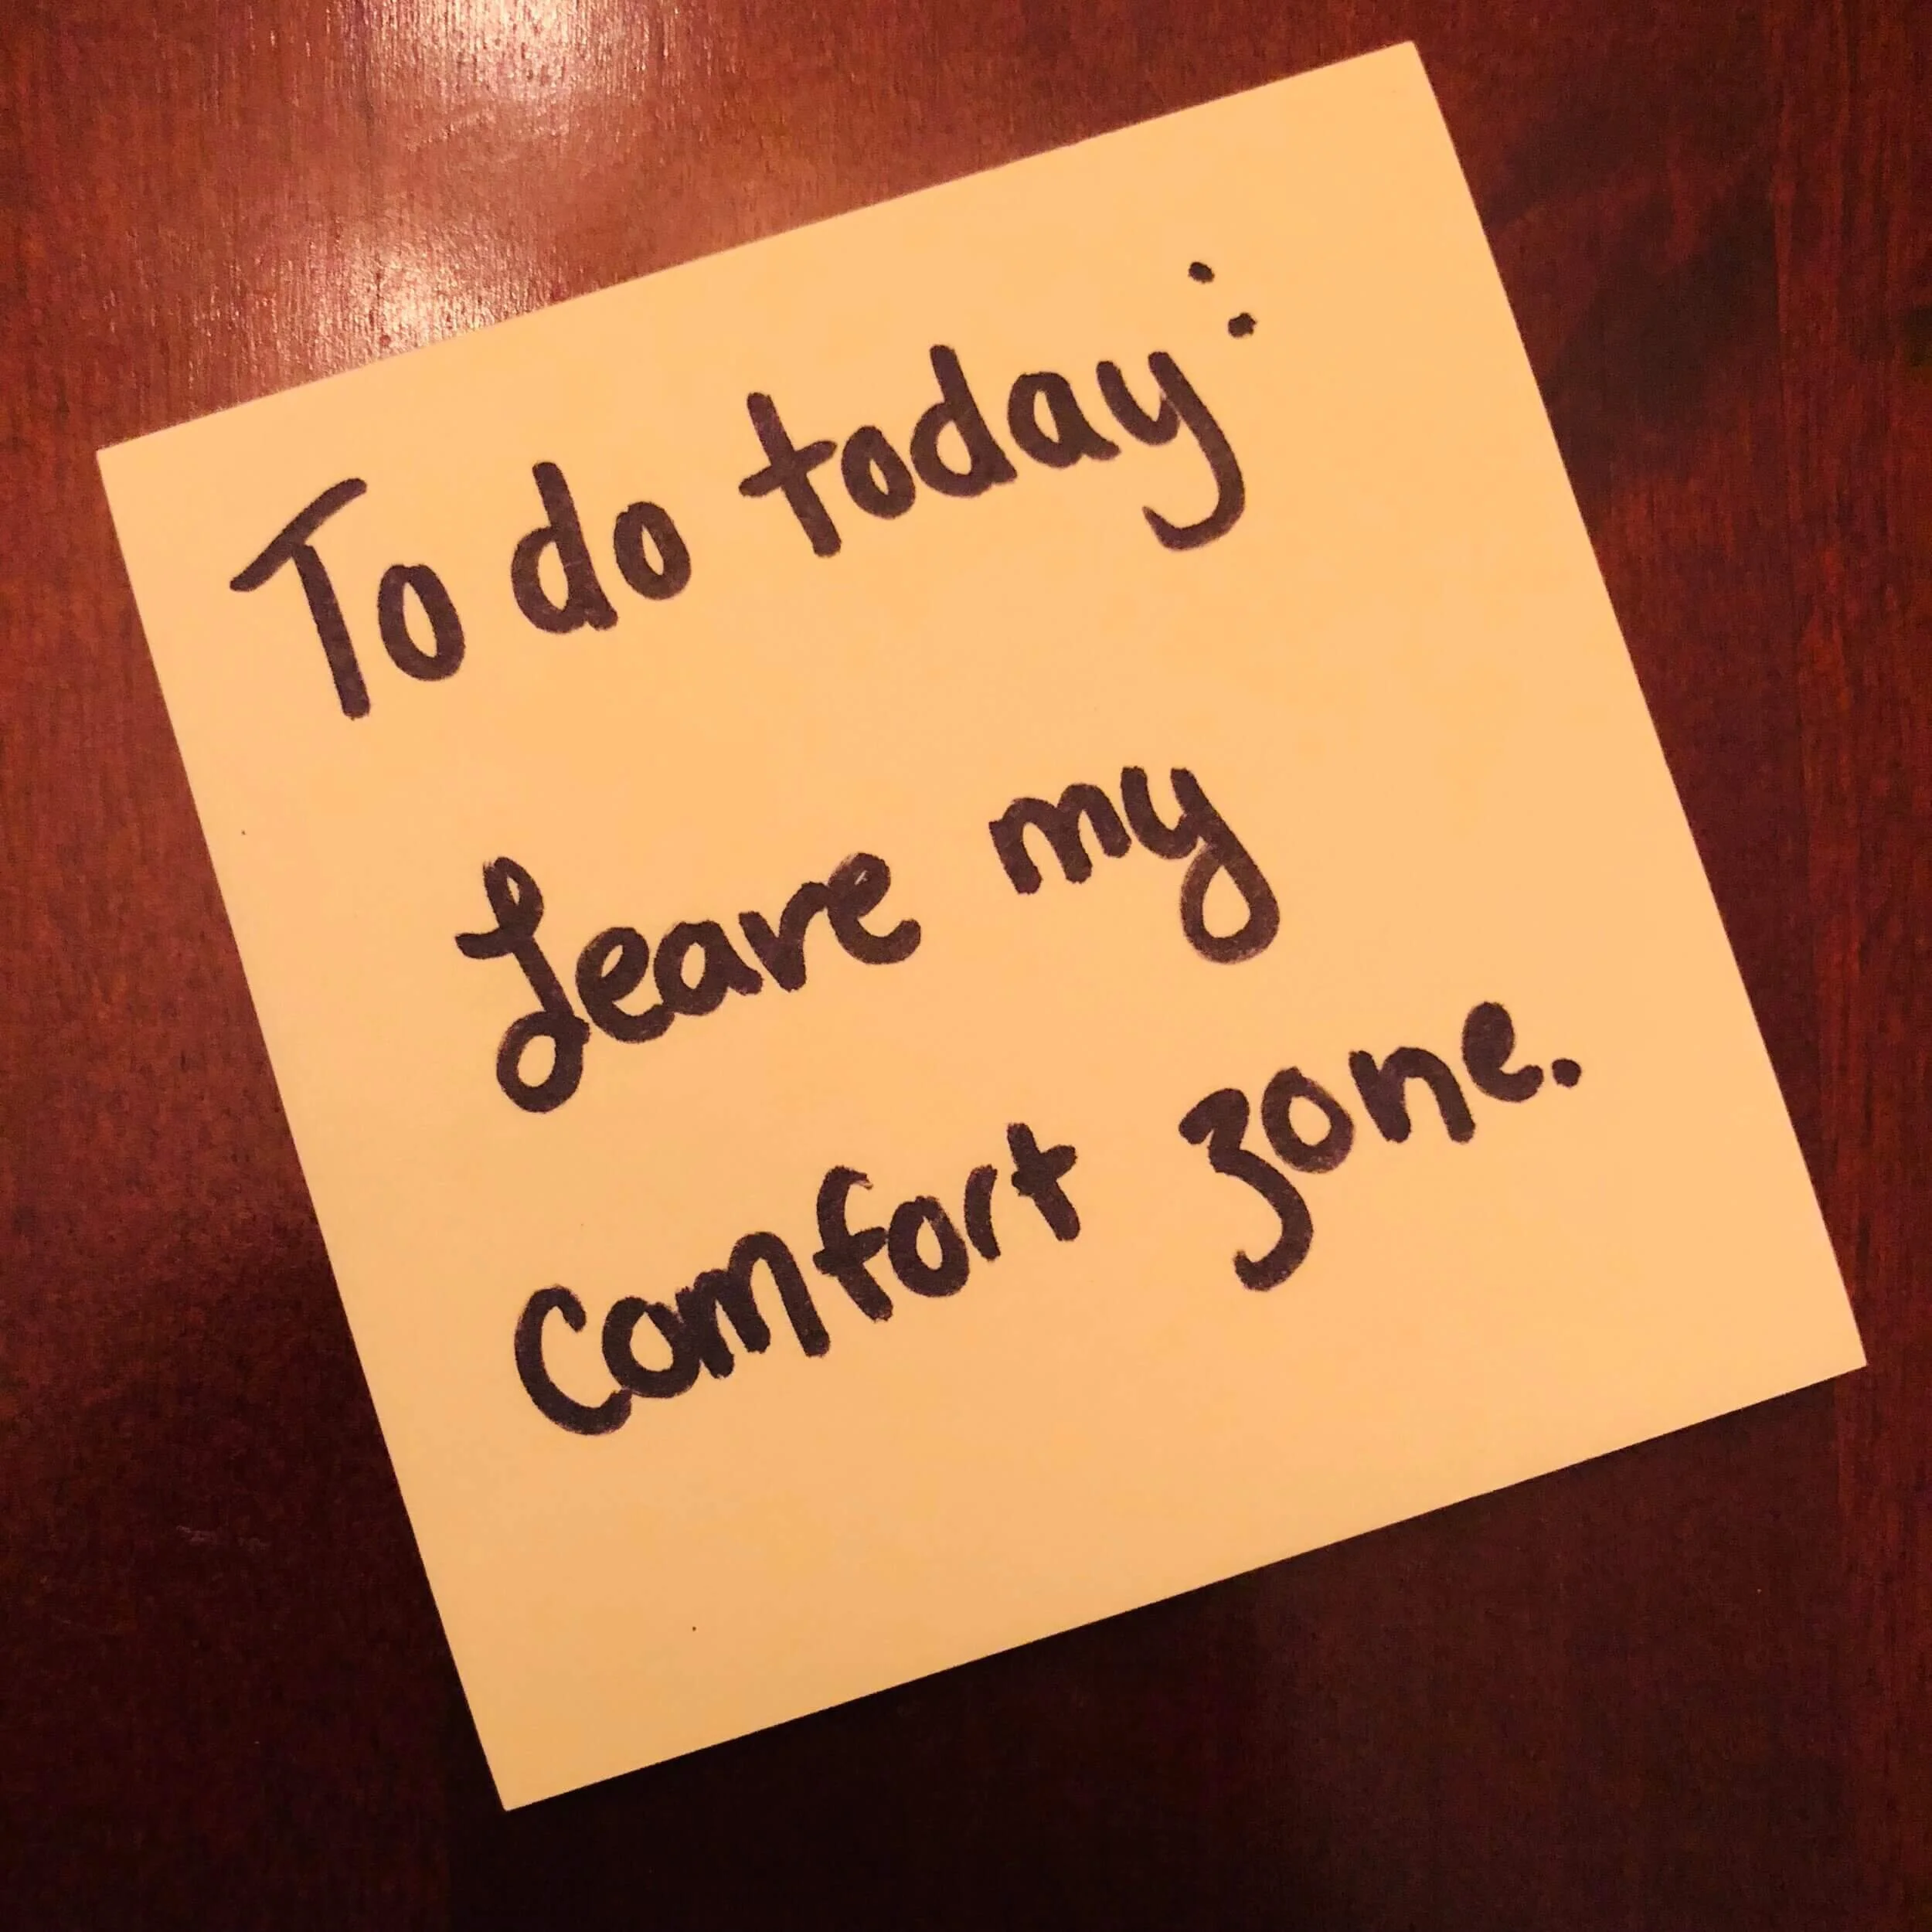 To do today:
Leave my
comfort zone.